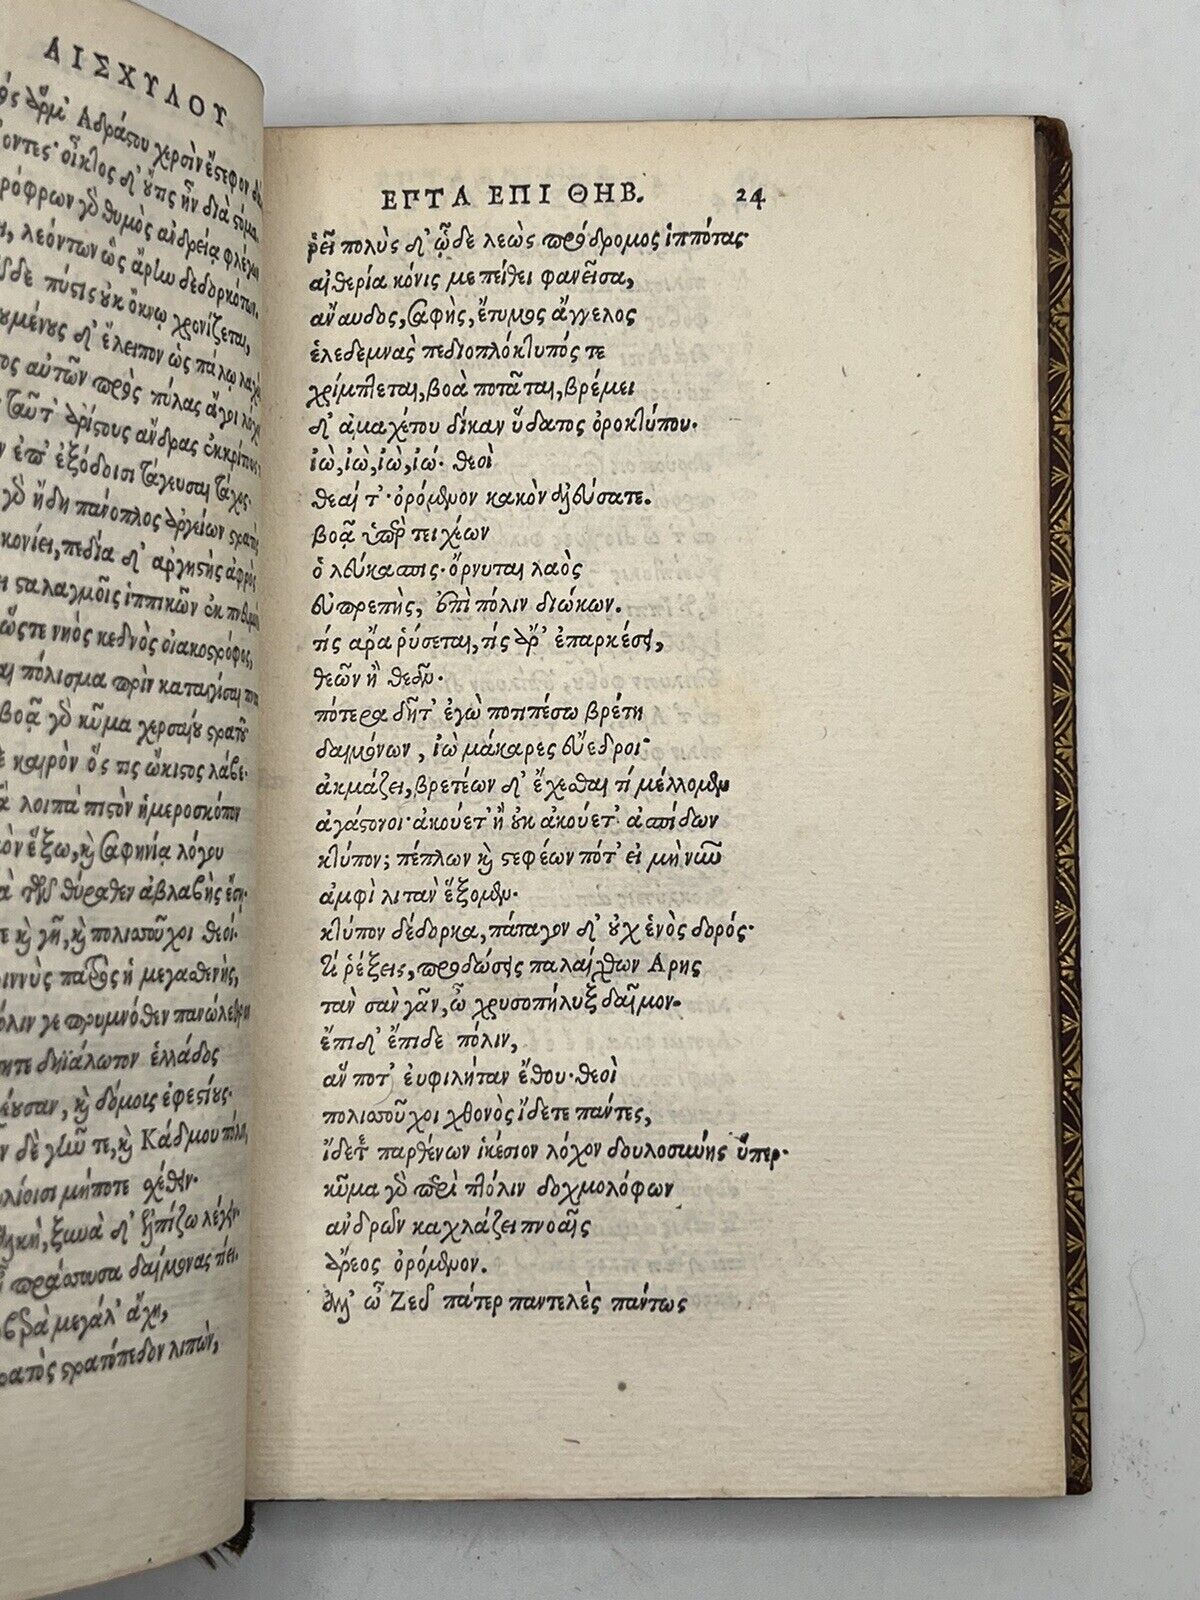 ΑΙΣΧΥΛΟΥ
Ἀδράστου χερσὶν ἔστεφον
οἶκτος δ' οὔτις ἦν διὰ στόμα.
γὰρ θυμὸς αἰδρείᾳ φλέγων
λεόντων ὣς ἄρην δεδορκότων.
πύστις οὐκ ὄκνῳ χρονίζεται,
δ' ἔλειπον ὡς πάλῳ
αὐτῶν πρὸς πύλας ἄγοι
ταῦτ' ἀρίστους ἄνδρας ἐκκρίτους
ἐπ' ἐξόδοισι τάγευσαι τάχος.
γὰρ ἤδη πάνοπλος ἀργείων στρατὸς
κονίει, πεδία δ' ἀργηστὴς ἀφρὸς
σταλαγμοῖς ἱππικῶν ἐκ
ὥστε νηὸς κεδνὸς οἰακοστρόφος,
πόλισμα πρὶν καταιγίσαι
βοᾷ γὰρ κῦμα χερσαῖον στρατοῦ
καιρὸν ὅς τις ὤκιστος λάβε·
λοιπὰ πιστὸν ἡμεροσκόπον
ἕξω, καὶ σαφηνίᾳ λόγου
τῶν θύραθεν ἀβλαβὴς ἔση·
καὶ γῆ, καὶ πολιοσοῦχοι θεοί·
πατρὸς ἡ μεγασθενὴς,
γε πρυμνόθεν
δηϊάλωτον ἑλλάδος
καὶ δόμοις ἐφεστίους·
δὲ γῆν τε, καὶ Κάδμου πόλιν,
μήποτε σχέθειν·
ξυνὰ δ' ἐλπίζω λέγειν·
πράσσουσα δαίμονας τίει.
μεγάλ' ἄχη,
στρατόπεδον λιπὼν,
ΕΠΤΑ ΕΠΙ ΘΗΒ. 24
ῥεῖ πολὺς δ' ᾧδε λεὼς πρόδρομος ἱππότας·
αἰθερία κόνις με πείθει φανεῖσα,
ἄναυδος, σαφὴς, ἔτυμος ἄγγελος
ἑλεδεμνὰς πεδιοπλόκτυπός τε
χρίμπτεται, βοὰ ποτᾶται, βρέμει
δ' ἀμαχέτου δίκαν ὕδατος ὀροκτύπου.
ἰὼ, ἰὼ, ἰὼ, ἰώ· θεοὶ
θεαί τ' ὀρόμενον κακὸν ἀλεύσατε.
βοᾷ ὑπὲρ τειχέων
ὁ λεύκασπις· ὄρνυται λαὸς
εὐπρεπὴς, ἐπὶ πόλιν διώκων.
τίς ἄρα ῥύσεται, τίς ἄρ' ἐπαρκέσει,
θεῶν ἢ θεᾶν·
πότερα δῆτ' ἐγὼ ποτιπέσω βρέτη
δαιμόνων, ἰὼ μάκαρες εὔεδροι·
ἀκμάζει, βρετέων δ' ἔχεσθαι τί μέλλομεν
ἀγάστονοι· ἀκούετ' ἢ οὐκ ἀκούετ' ἀσπίδων
κτύπον; πέπλων καὶ στεφέων πότ' εἰ μὴ νῦν
ἀμφὶ λιτὰν ἕξομεν·
κτύπον δέδορκα, πάταγον δ' οὐχ ἑνὸς δορός·
τί ῥέξεις, προδώσεις παλαίχθων Ἄρης
τὰν σὰν γᾶν, ὦ χρυσοπήληξ δαῖμον·
ἔπιδ' ἔπιδε πόλιν,
ἄν ποτ' εὐφιλήταν ἔθου· θεοὶ
πολιοσοῦχοι χθονὸς ἴδετε πάντες,
ἴδετε παρθένων ἱκέσιον λόχον δουλοσύνης ὕπερ·
κῦμα γὰρ περὶ πτόλιν δοχμολόφων
ἀνδρῶν καχλάζει πνοαῖς
ἄρεος ὀρόμενον.
ἀλλ' ὦ Ζεῦ πάτερ παντελὲς πάντως